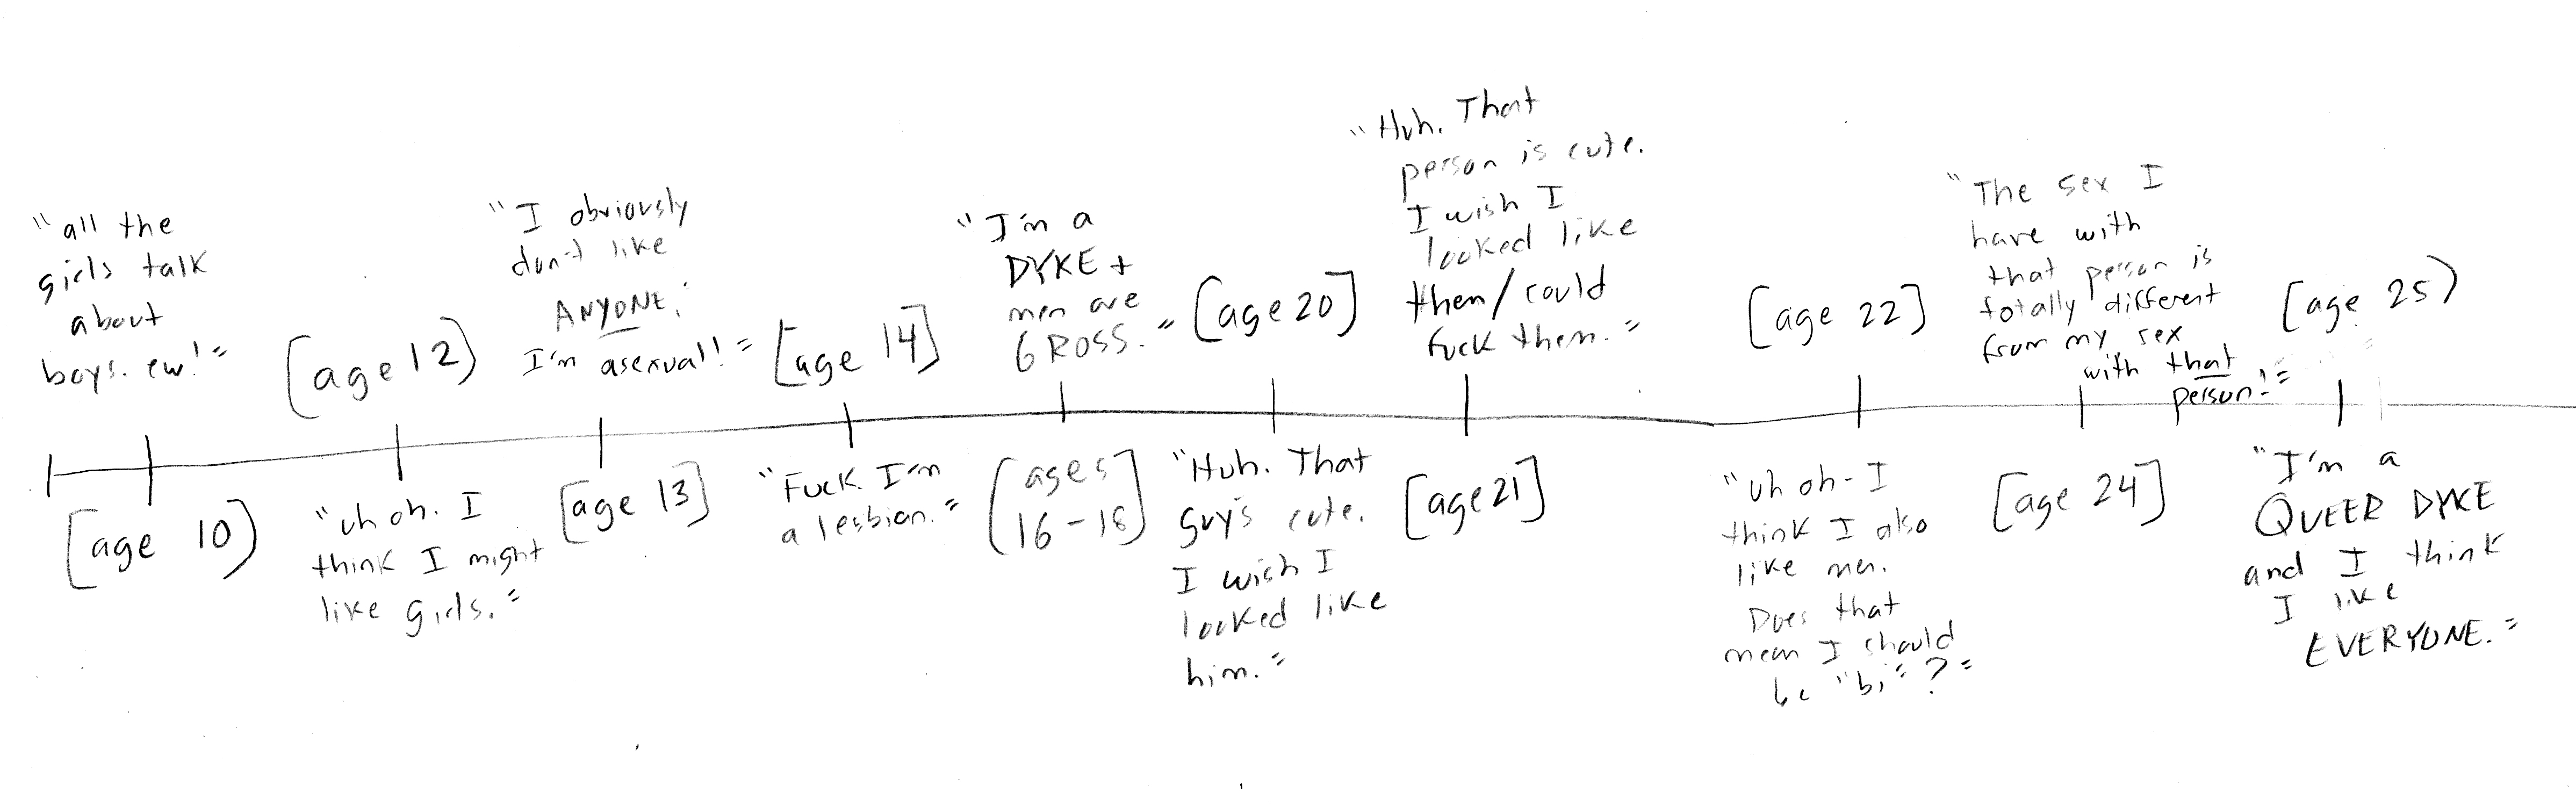 "all the
girls talk
about
boys. ew!"
[age 10]
[age 12]
"uh oh. I
think I might
like girls."
"I obviously
don't like
ANYONE.
I'm asexual!"
[age 13]
[age 14]
"Fuck. I'm
a lesbian."
"I'm a
DYKE +
men are
GROSS."
[ages
16-18]
[age 20]
"Huh. That
guy's cute.
I wish I
looked like
him."
"Huh. That
person is cute.
I wish I
looked like
them/could
fuck them."
[age 21]
[age 22]
"uh oh - I
think I also
like men.
Does that
mean I should
be "bi"?"
"The sex I
have with
that person is
totally different
from my sex
with that
person!"
[age 24]
[age 25]
"I'm a
QUEER DYKE
and I think
I like
EVERYONE."